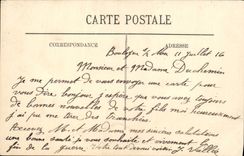 CARTE POSTALE
CORRESPONDANCE ADRESSE
Boulogne s/ Mer 11 Juillet 16
Monsieur et Madame Duchemin
Je me permet de vous envoyer une carte pour
vous dire bonjour j'espère que vous avez toujours
de bonnes nouvelles de votre fils moi heureusement
j'ai pu me tirer des tranchées
Recevez Mr et Madame mes sincères salutations
une bonne santé je vous souhaite et vivement
fin de la guerre